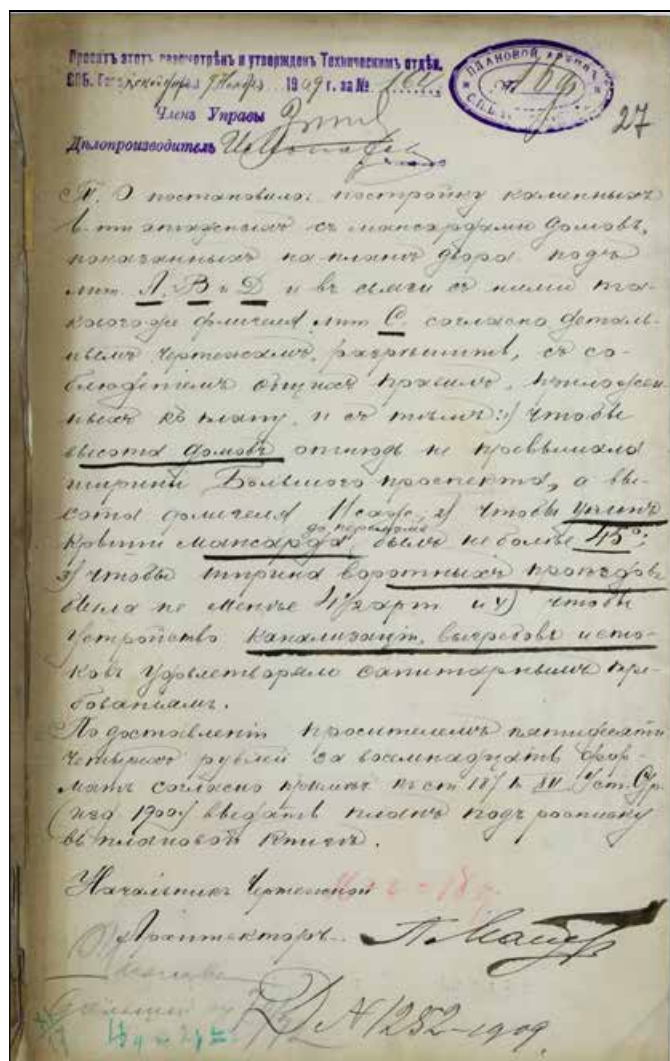 Проектъ этотъ разсмотрѣнъ и утвержденъ Техническимъ отдѣл.
СПБ. Городской Управы 9 Ноября 1909 г. за № 164
ПЛАНОВОЙ АРХИВЪ
27
Членъ Управы
Дѣлопроизводитель
Т. О постановило: постройку каменныхъ
6-ти этажныхъ съ мансардами домовъ,
показанныхъ на планѣ двора подъ
лит. А, В и Д и въ связи съ ними та-
кого же флигеля лит С. согласно деталь-
нымъ чертежамъ, разрѣшить, съ со-
блюденіемъ общихъ правилъ, приложен-
ныхъ къ плану, и съ тѣмъ: 1) чтобы
высота домовъ отнюдь не превышала
ширины Большого проспекта, а вы-
сота флигеля 11 саж, 2) чтобы уклонъ
крыши мансарда до перелома былъ не болѣе 45°;
3) чтобы ширина воротныхъ проѣздовъ
была не менѣе 4½ арт и 4) чтобы
устройство канализаціи, выгребовъ и сто-
ковъ удовлетворяло санитарнымъ тре-
бованіямъ.
По доставленіи просителемъ пятидесяти
четырехъ рублей за восемнадцать фор-
матъ согласно примѣч. къ ст 187 Уст. Стр.
(изд 1900) выдать планъ подъ росписку
въ плановой книгѣ.
Начальникъ Чертежной
Архитекторъ
Д № 1252-1909